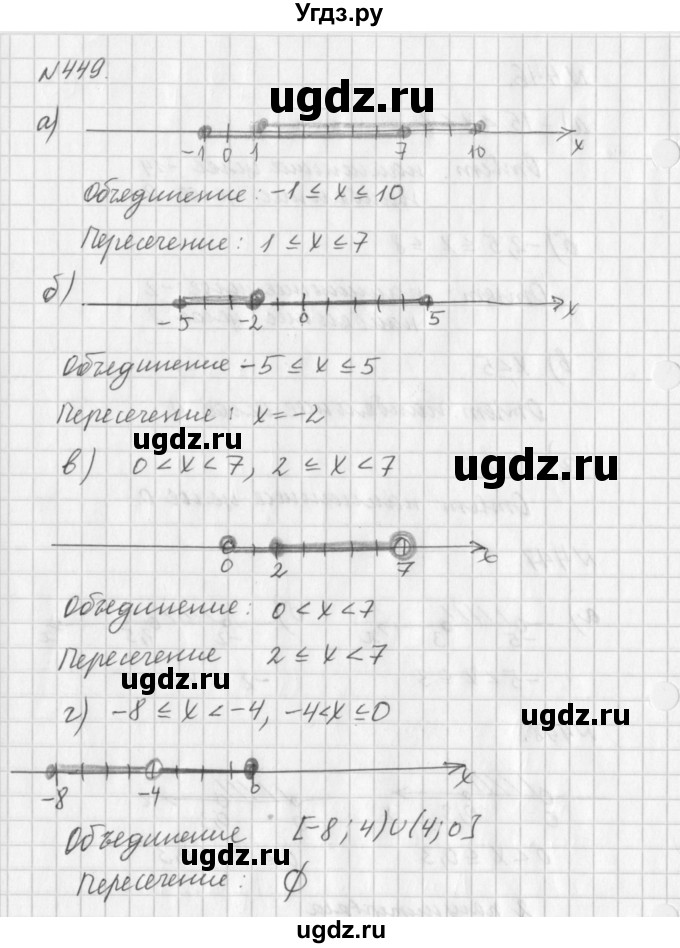 Угдз.ру
№449.
ugdz.ru
а)
-1 0 1 7 10 x
Объединение: -1 ≤ x ≤ 10
Пересечение: 1 ≤ x ≤ 7
б)
-5 -2 0 5 x
Объединение -5 ≤ x ≤ 5
Пересечение: x = -2
ugdz.ru
в) 0 < x < 7, 2 ≤ x < 7
ugdz.ru
0 2 7 x
Объединение: 0 < x < 7
Пересечение 2 ≤ x < 7
ugdz.ru
г) -8 ≤ x < -4, -4 < x ≤ 0
ugdz.ru
-8 -4 0 x
Объединение [-8; 4) ∪ (4; 0]
ugdz.ru
Пересечение: ϕ
ugdz.ru